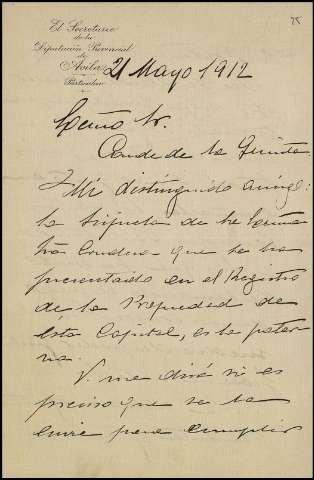 25
El Secretario
de la
Diputación Provincial
de
Avila
Particular
21 Mayo 1912
Excmo Sr.
Conde de la
Mi distinguido amigo:
la de la Excma
Sra Condesa que se ha
presentado en el Registro
de la Propiedad de
esta Capital, es la pater
na.
V. me dirá si es
preciso que se la
envie para cumplir